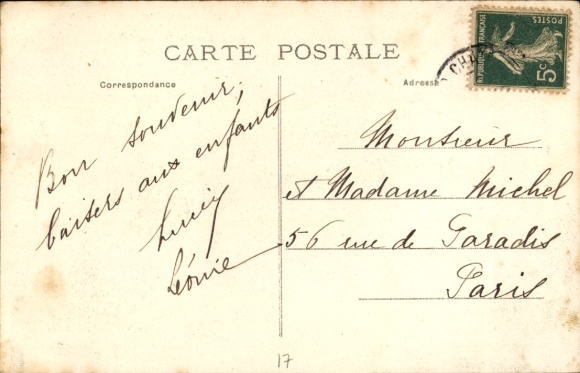 CARTE POSTALE
Correspondance
Adresse
Bon souvenir,
baisers aux enfants
Lucie
Léonie
Monsieur
et Madame Michel
56 rue de Paradis
Paris
POSTES
REPUBLIQUE FRANÇAISE
5c
17